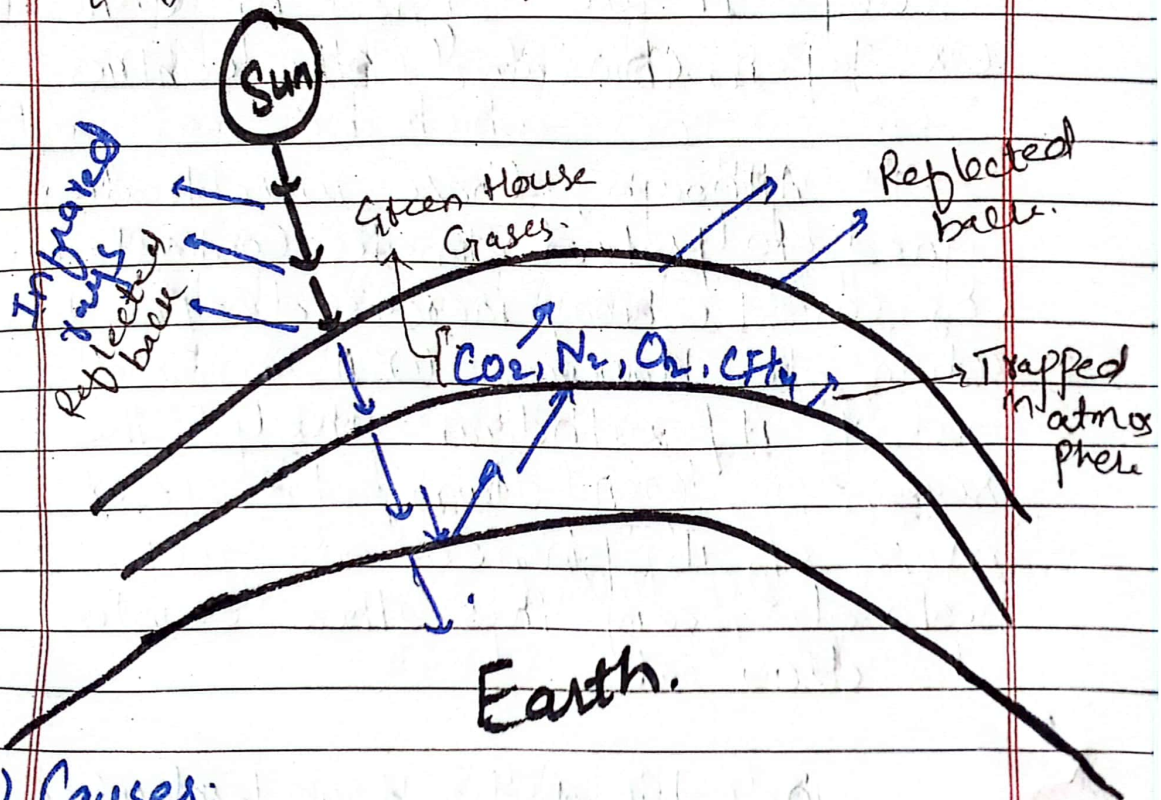 Sun
Infrared
rays
Reflected
back
Green House
Gases.
Reflected
back.
CO2, N2, O2, CH4
Trapped
in
atmos
phere
Earth.
) Causes.